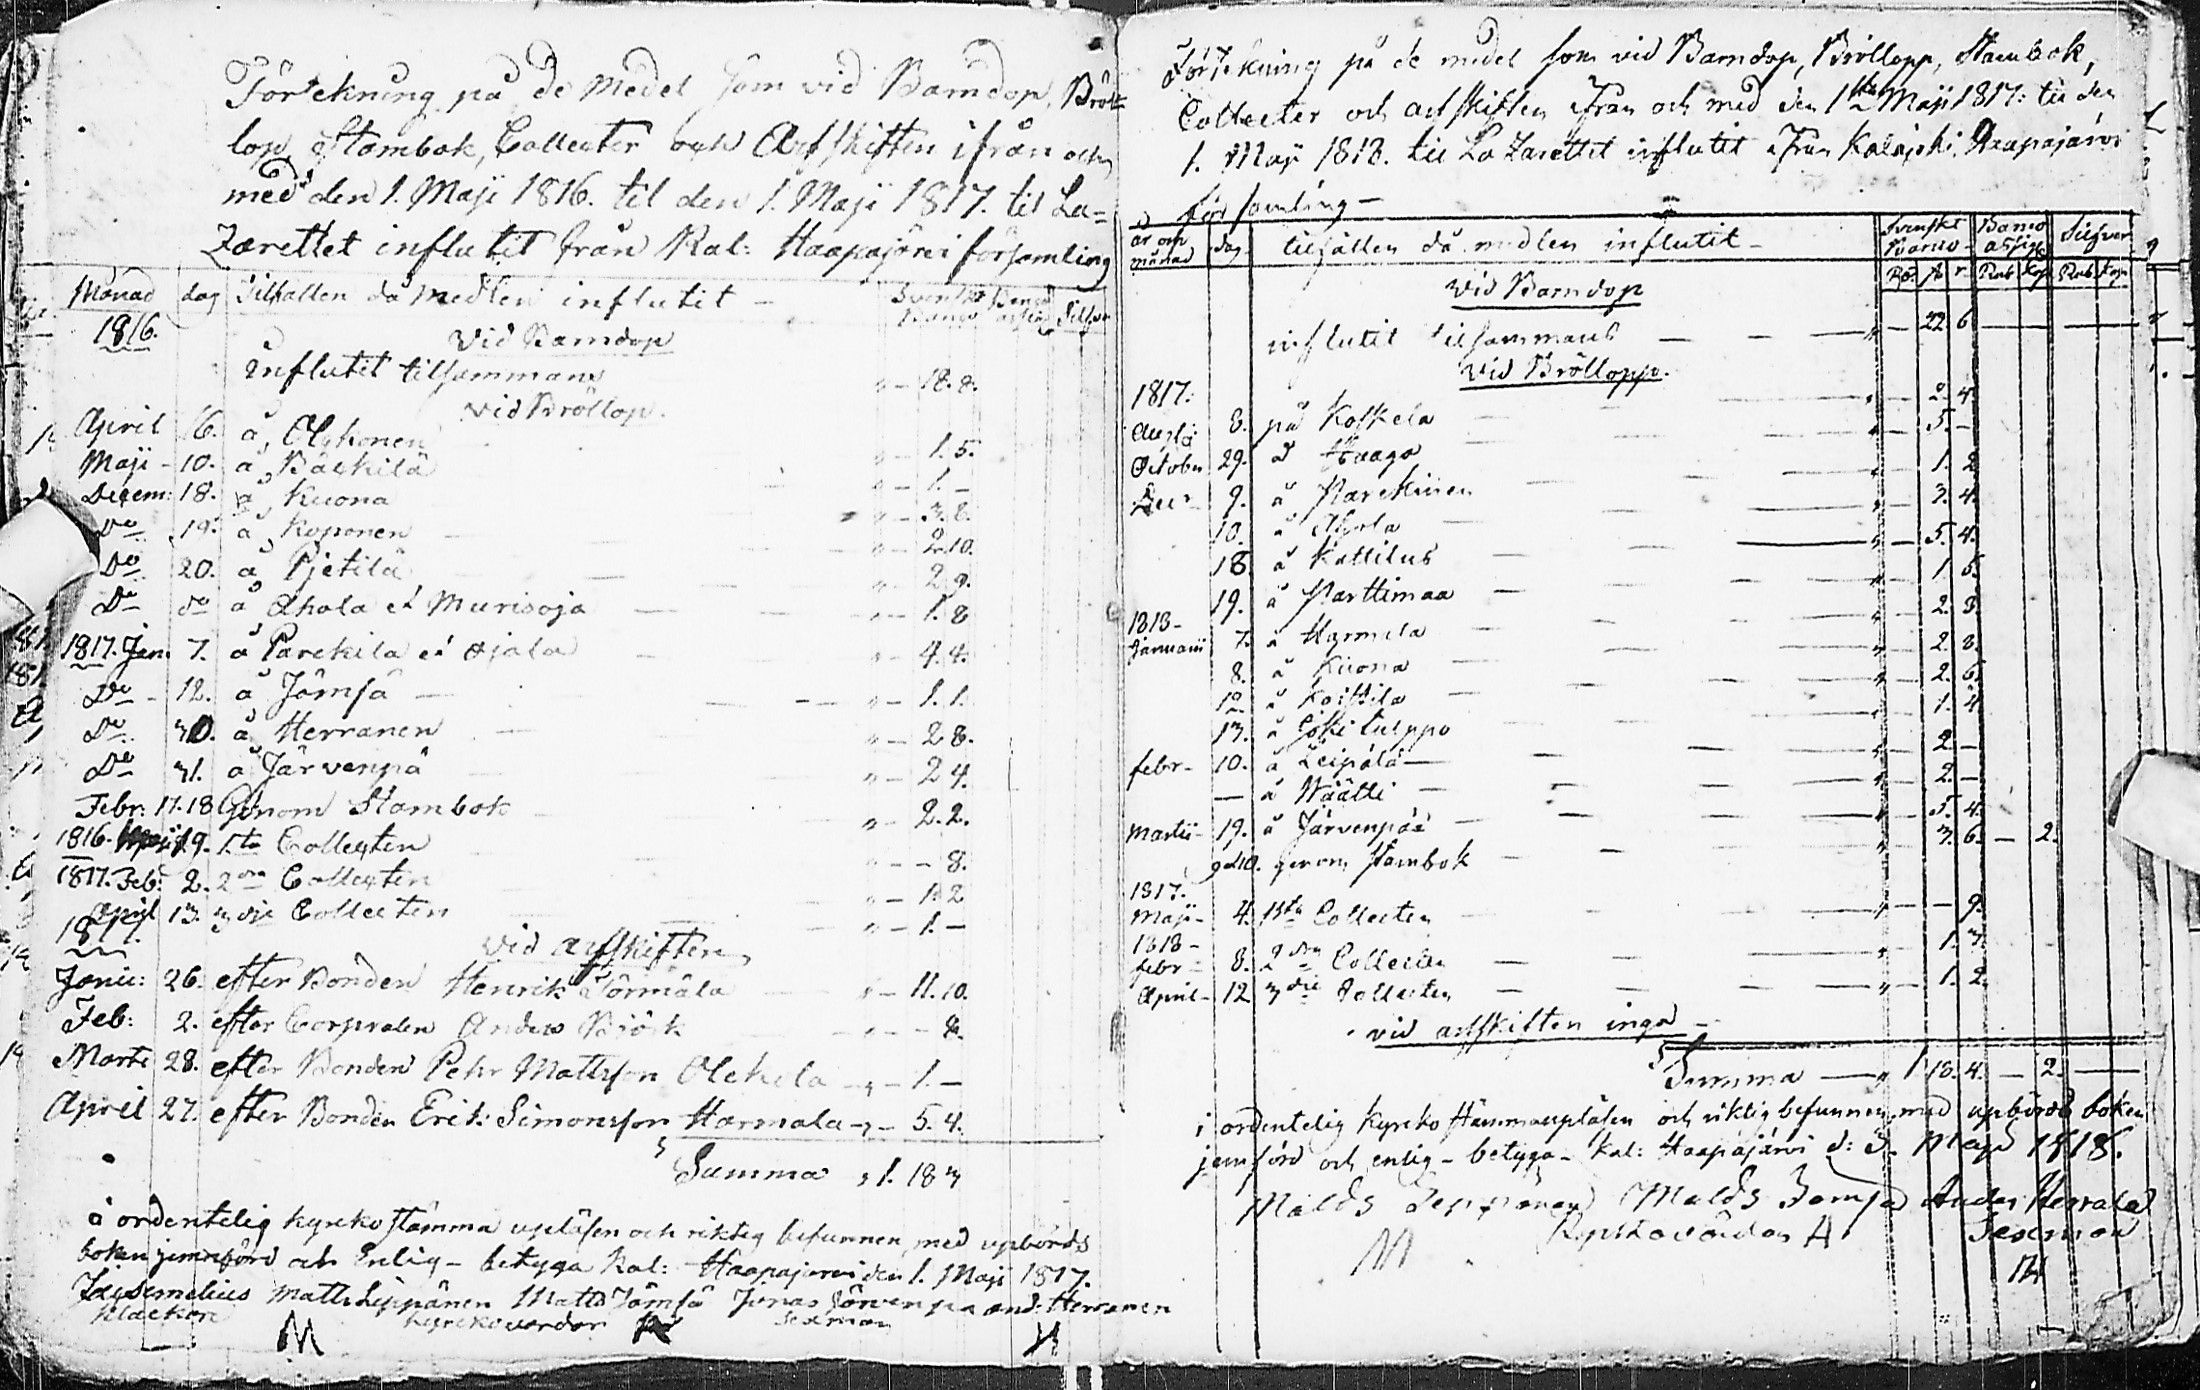 Förtekning på de Medel som vid Barndop, Bröl-
lop, Stambok, Collecter och Arfskiften ifrån och
med den 1. Maji 1816. til den 1. Maji 1817. til La=
Zarettet influtit från Kal: Haapajärvi församling
Månad dag Tilfällen då medlen influtit - Svenskt Banco Banco assign Silfver
1816. Vid Barndop
influtit tilsammans " - 18. 8.
vid Bröllop.
April 16. å Olykonen " - 1. 5.
Maji - 10. å Bäckilä " - 1. -
Decem: 18. å Kuona " - 3. 8.
Do 19. å Koponen " - 2. 10.
Do 20. å Pjetilä " - 2. 9.
Do do å Ahola et Murisoja " - 1. 8
1817. Jan: 7. å Parckila et Ojala " - 4. 4.
Do - 12. å Jämsä " - 1. 1.
Do 30. å Herranen " - 2 8.
Do 31. å Järvenpä " - 2 4.
Febr: 17. 18 Genom Stambok " - 2. 2.
1816. Maji 19. 1.ta Collecten " - - 8.
1817. Feb: 2. 2dra Collecten " - 1. 2
April 13. 3dje Collecten " - 1. -
1817. vid arfskiften
Janu: 26. efter Bonden Henrik Törmälä " - 11. 10.
Feb: 2. efter Corpralen Anders Björk " - - 8.
Marti 28. efter Bonden Pehr Mattsson Olckola " - 1. -
April 27. efter Bonden Erik Simonsson Harmala " - 5. 4.
Summa " 1. 18 3
å ordentelig kyrko stämma upläsen och riktig befunnen, med upbörds
boken jemnförd och Enlig - betyga Kal: Haapajervi den 1. Maji 1817.
Matts Leppänen Matts Jämsä Jonas Järvenpa And: Herranen
klockare kyrkovärdar Sexman
M
Förtekning på de medel som vid Barndop, Bröllopp, Stambok,
Collecter och arfskiften ifrån och med den 1sta Maji 1817: til den
1. Maji 1818. til Lazarettet influtit ifrån Kalajoki Haapajärvi
församling -
år och månad dag tilfällen då medlen influtit - Svenskt Banco - Banco assign Silfver
Rd. sk r. Rub Cop Rub Cop
Vid Barndop
influtit tilsammans " - 22 6
Vid Bröllopp.
1817:
Augsti 8. på Koskela " - 2. 4.
October 29. å Haago " - 5. -
Decr 9. å Parckinen " - 1. 2
10. å Ahola " - 3. 4.
18 å Kattilus " - 5. 4.
19. å Parttimaa " - 1. 5.
1818 -
Januarii 7. å Harmela " - 2. 8.
8. å Kuona " - 2. 8.
12. å Koiskila " - 2. 6.
13. å Joki tulppo " - 1. 4
febr - 10. å Leipälä " - 2. -
- å Wäätti " - 2. -
Martii - 19. å Järvenpää " - 5. 4.
9 a 10. genom Stambok " - 3. 6. - 2.
1817.
Maji - 4. 1sta Collecten " - - 9.
1818 -
febr - 8. 2dra Collecten " - 1. 3.
April - 12 3die Collecten " - 1. 2.
vid arfskiften inga -
Summa - " 1 18. 4. - 2. -
i ordentelig kyrko stämma upläsen och riktig befunnen, med upbörds boken
jemförd och enlig - betyga - Kal: Haapajärvi d: 3. Maji 1818.
Matts Leppänen Matts Jämsä Anders Herrala
Kyrkovärdar A Sexman
M